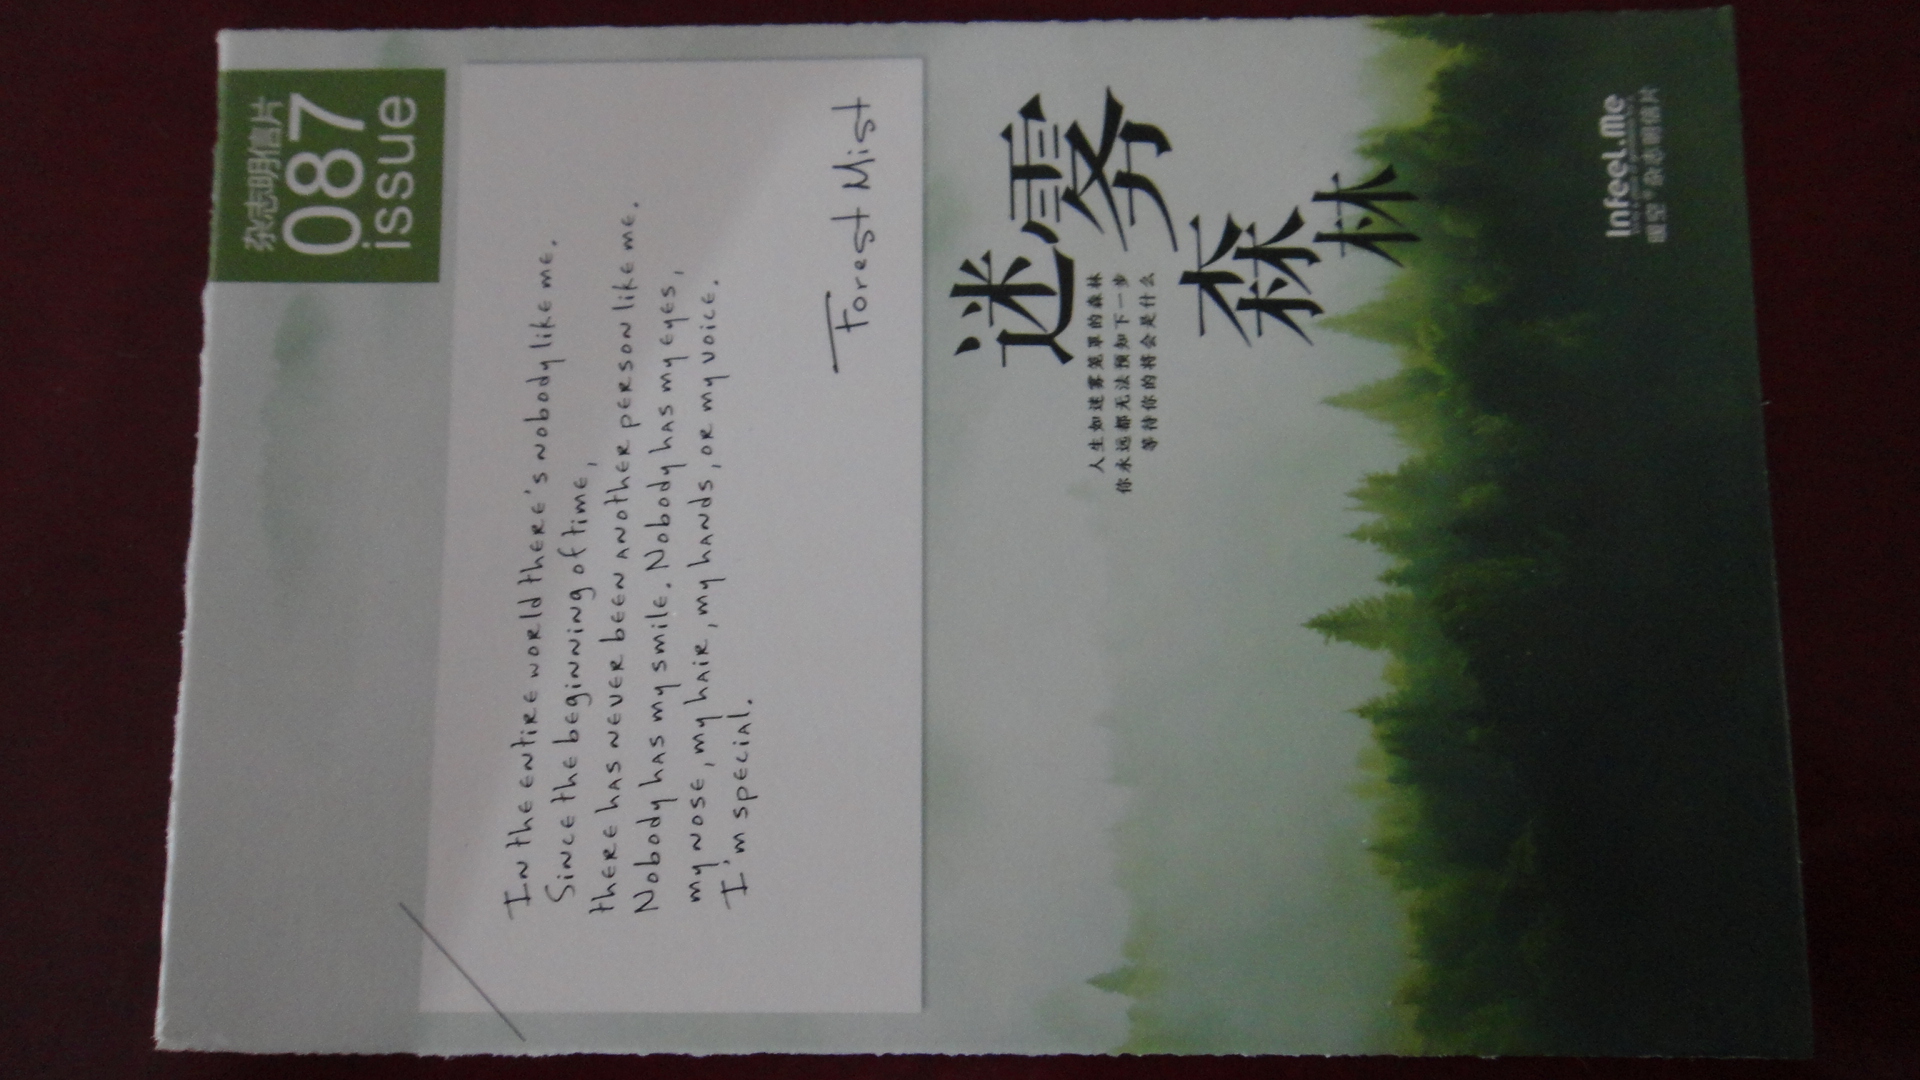 杂志明信片
087
issue
In the entire world there's nobody like me.
Since the beginning of time,
there has never been another person like me.
Nobody has my smile. Nobody has my eyes,
my nose, my hair, my hands, or my voice.
I'm special.
—Forest Mist
迷雾
森林
人生如迷雾笼罩的森林
你永远都无法预知下一步
等待你的将会是什么
Infeel.Me
暖空®杂志明信片